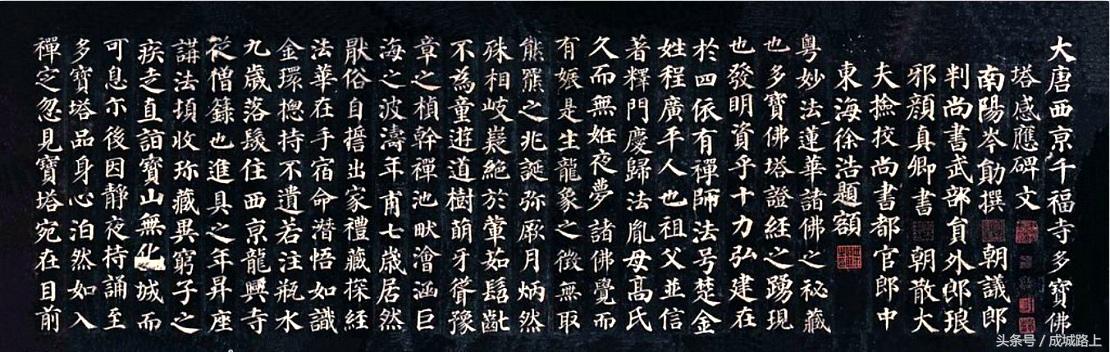 大唐西京千福寺多寶佛
塔感應碑文
南陽岑勛撰 朝議郎
判尚書武部員外郎琅
邪顏真卿書 朝散大
夫撿挍尚書都官郎中
東海徐浩題額
粵妙法蓮華諸佛之秘藏
也多寶佛塔證經之踴現
也發明資乎十力弘建在
於四依有禪師法号楚金
姓程廣平人也祖父並信
著釋門慶歸法胤母髙氏
久而無姙夜夢諸佛覺而
有娠是生龍象之徵無取
熊羆之兆誕弥厥月炳然
殊相岐嶷絕於葷茹髫齔
不為童遊道樹萌牙聳豫
章之楨幹禪池畎澮涵巨
海之波濤年甫七歲居然
厭俗自誓出家禮藏探經
法華在手宿命潛悟如識
金環揔持不遺若注瓶水
九歲落髮住西京龍興寺
從僧籙也進具之年昇座
講法頃收珎藏異窮子之
疾走直詣寶山無化城而
可息尒後因靜夜持誦至
多寶塔品身心泊然如入
禪定忽見寶塔宛在目前
头条号 / 成城路上